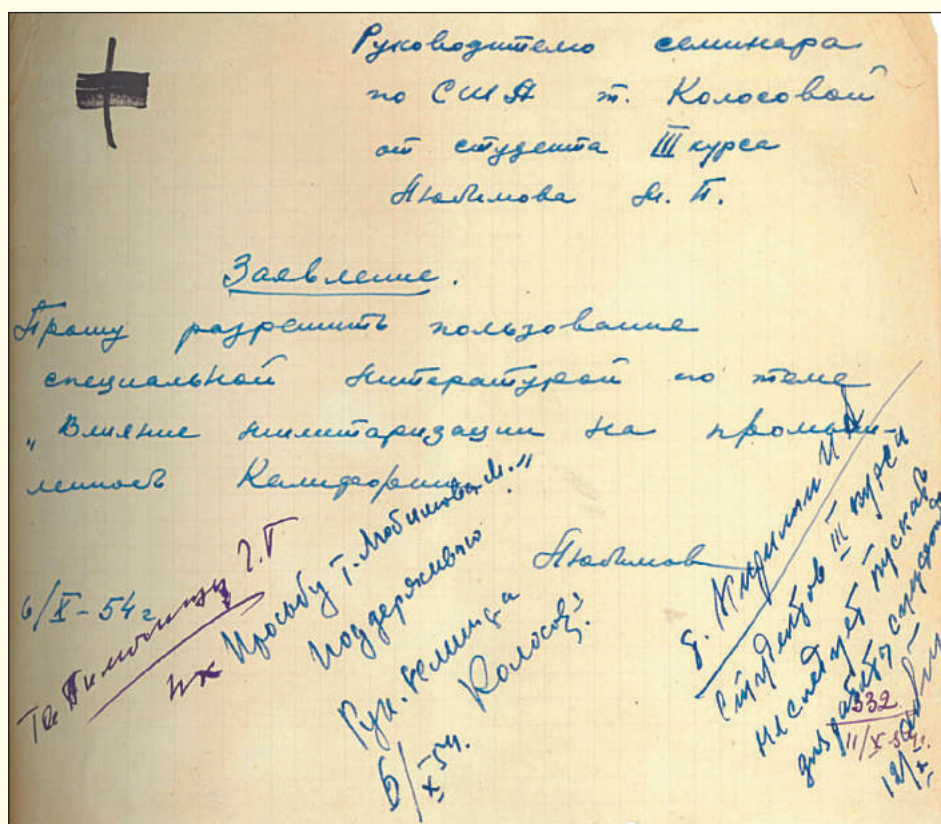 Руководителю семинара
по США т. Колосовой
от студента III курса
Любимова М. П.
Заявление.
Прошу разрешить пользование
специальной литературой по теме
„Влияние милитаризации на промыш-
ленность Калифорнии"
Любимов
6/X-54г
Просьбу т. Любимова М.
поддерживаю
Рук. семинара
Колосов
6/X 54.
Студентов III курса
не следует пускать
для работы
332
11/X-54г.
12/X